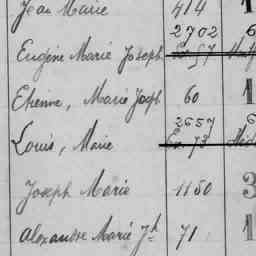 Jean Marie 414 1
2702 6
Eugène Marie Joseph Ex 57
Etienne, Marie Joseph 60 1
2657 6
Louis, Marie Ex 73
Joseph Marie 1150 3
Alexandre Marie Jh 71 1